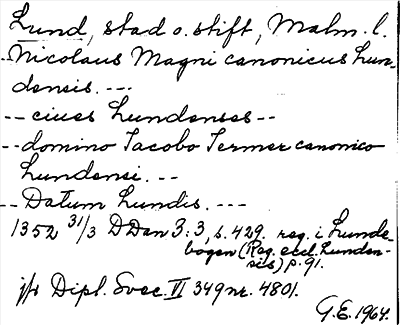 Lund, stad o. stift, Malm. l.
--Nicolaus Magni canonicus Lun-
densis. ---
-- ciues Lundenses --
-- domino Iacobo Termer canonico
Lundensi. --
-- Datum Lundis. ---
1352 31/3 DDan 3:3, s. 429. reg. i Lunde-
bogen (Reg. eccl. Lunden-
sis) p. 91.
jfr Dipl. Svec. VI 349 nr. 4801.
G.E. 1964.